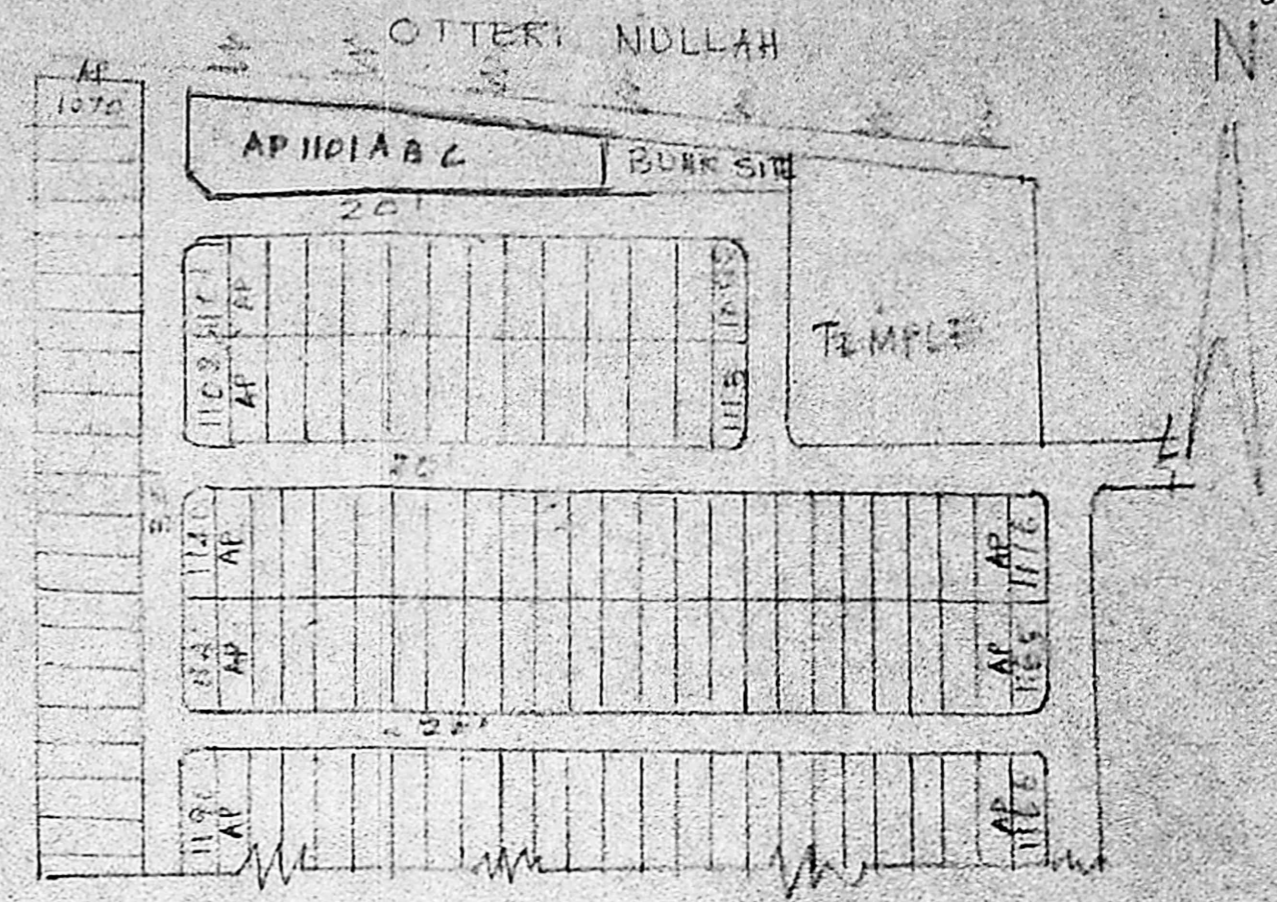 OTTERI NULLAH
N
AP
1070
AP 1101 A B C
BUNK SITE
20'
AP
AP
1102
1115
TEMPLE
20'
AP
AP
1116
AP
AP
1165
20'
AP
AP
1166